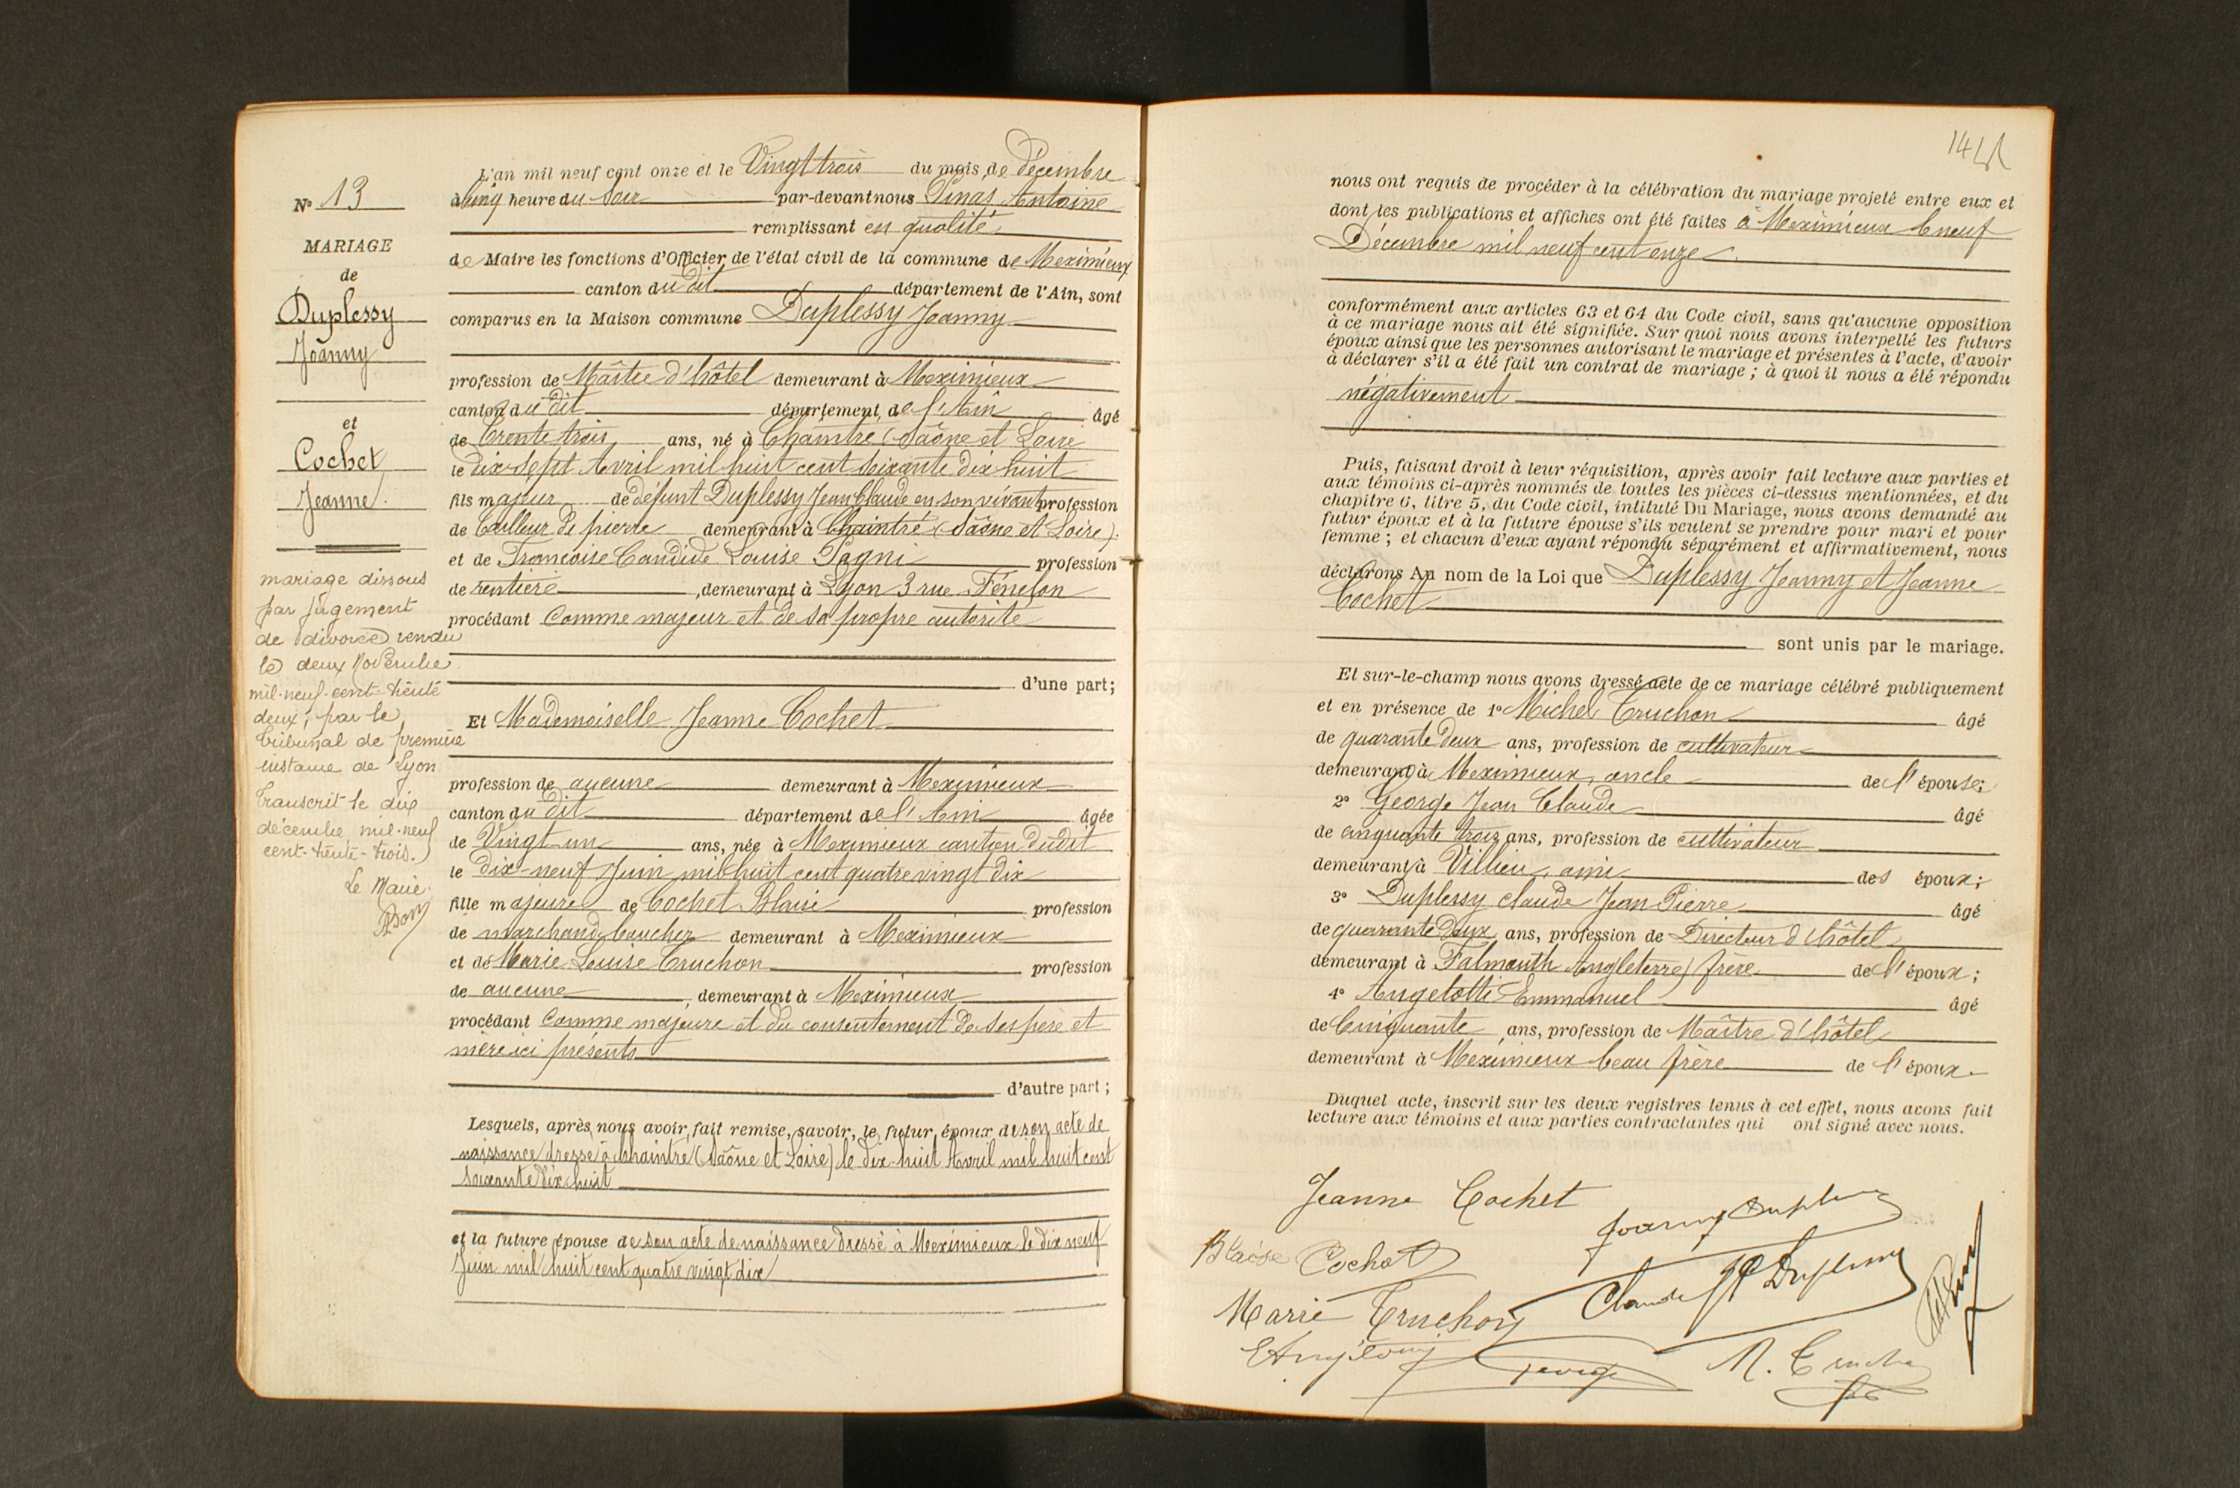 N° 13
MARIAGE
de
Duplessy
Joanny
et
Cochet
Jeanne
mariage dissous
par jugement
de divorce rendu
le deux Novembre
mil-neuf-cent-trente
deux, par le
tribunal de première
instance de Lyon
Transcrit le dix
décembre mil-neuf
cent-trente-trois.
Le Maire
L'an mil neuf cent onze et le Vingt trois du mois de décembre
à cinq heure du soir par-devant nous Pinas Antoine
remplissant en qualité
de Maire les fonctions d'Officier de l'état civil de la commune de Meximieux
canton du dit département de l'Ain, sont
comparus en la Maison commune Duplessy Joanny
profession de Maître d'hôtel demeurant à Meximieux
canton du dit département de l'Ain âgé
de trente trois ans, né à Chaintré (Saône et Loire
le dix-sept Avril mil huit cent soixante dix huit
fils majeur de défunt Duplessy Jean Claude en son vivant profession
de tailleur de pierre demeurant à Chaintré (Saône et Loire).
et de Francoise Candide Louise Pagni profession
de rentière, demeurant à Lyon 3 rue Fénelon
procédant comme majeur et de sa propre autorité
d'une part;
Et Mademoiselle Jeanne Cochet
profession de aucune demeurant à Meximieux
canton du dit département de l'Ain âgée
de Vingt-un ans, née à Meximieux canton dudit
le dix-neuf Juin mil huit cent quatre vingt dix
fille majeure de Cochet Blaise profession
de marchand boucher demeurant à Meximieux
et de Marie Louise Truchon profession
de aucune, demeurant à Meximieux
procédant comme majeure et du consentement de ses père et
mère ici présents
d'autre part;
Lesquels, après nous avoir fait remise, savoir, le futur époux de son acte de
naissance dressé à Chaintré (Saône et Loire) le dix-huit Avril mil huit cent
soixante dix huit
et la future épouse de son acte de naissance dressé à Meximieux le dix neuf
Juin mil huit cent quatre vingt dix
nous ont requis de procéder à la célébration du mariage projeté entre eux et
dont les publications et affiches ont été faites à Meximieux le neuf
Décembre mil neuf cent onze
conformément aux articles 63 et 64 du Code civil, sans qu'aucune opposition
à ce mariage nous ait été signifiée. Sur quoi nous avons interpellé les futurs
époux ainsi que les personnes autorisant le mariage et présentes à l'acte, d'avoir
à déclarer s'il a été fait un contrat de mariage; à quoi il nous a été répondu
négativement
Puis, faisant droit à leur réquisition, après avoir fait lecture aux parties et
aux témoins ci-après nommés de toutes les pièces ci-dessus mentionnées, et du
chapitre 6, titre 5, du Code civil, intitulé Du Mariage, nous avons demandé au
futur époux et à la future épouse s'ils veulent se prendre pour mari et pour
femme; et chacun d'eux ayant répondu séparément et affirmativement, nous
déclarons Au nom de la Loi que Duplessy Joanny et Jeanne
Cochet
sont unis par le mariage.
Et sur-le-champ nous avons dressé acte de ce mariage célébré publiquement
et en présence de 1° Michel Truchon âgé
de quarante deux ans, profession de cultivateur
demeurant à Meximieux, oncle de l'épouse;
2° George Jean Claude âgé
de cinquante trois ans, profession de cultivateur
demeurant à Villieu, ami des époux;
3° Duplessy claude Jean Pierre âgé
de quarante deux ans, profession de Directeur d'hôtel
demeurant à Falmouth Angleterre) frère de l'époux;
4° Angelotti Emmanuel âgé
de Cinquante ans, profession de Maître d'hôtel
demeurant à Meximieux beau frère de l'époux.
Duquel acte, inscrit sur les deux registres tenus à cet effet, nous avons fait
lecture aux témoins et aux parties contractantes qui ont signé avec nous.
Jeanne Cochet
Joanny Duplessy
Blaise Cochet
Claude JP Duplessy
Marie Truchon
George
M. Truchon